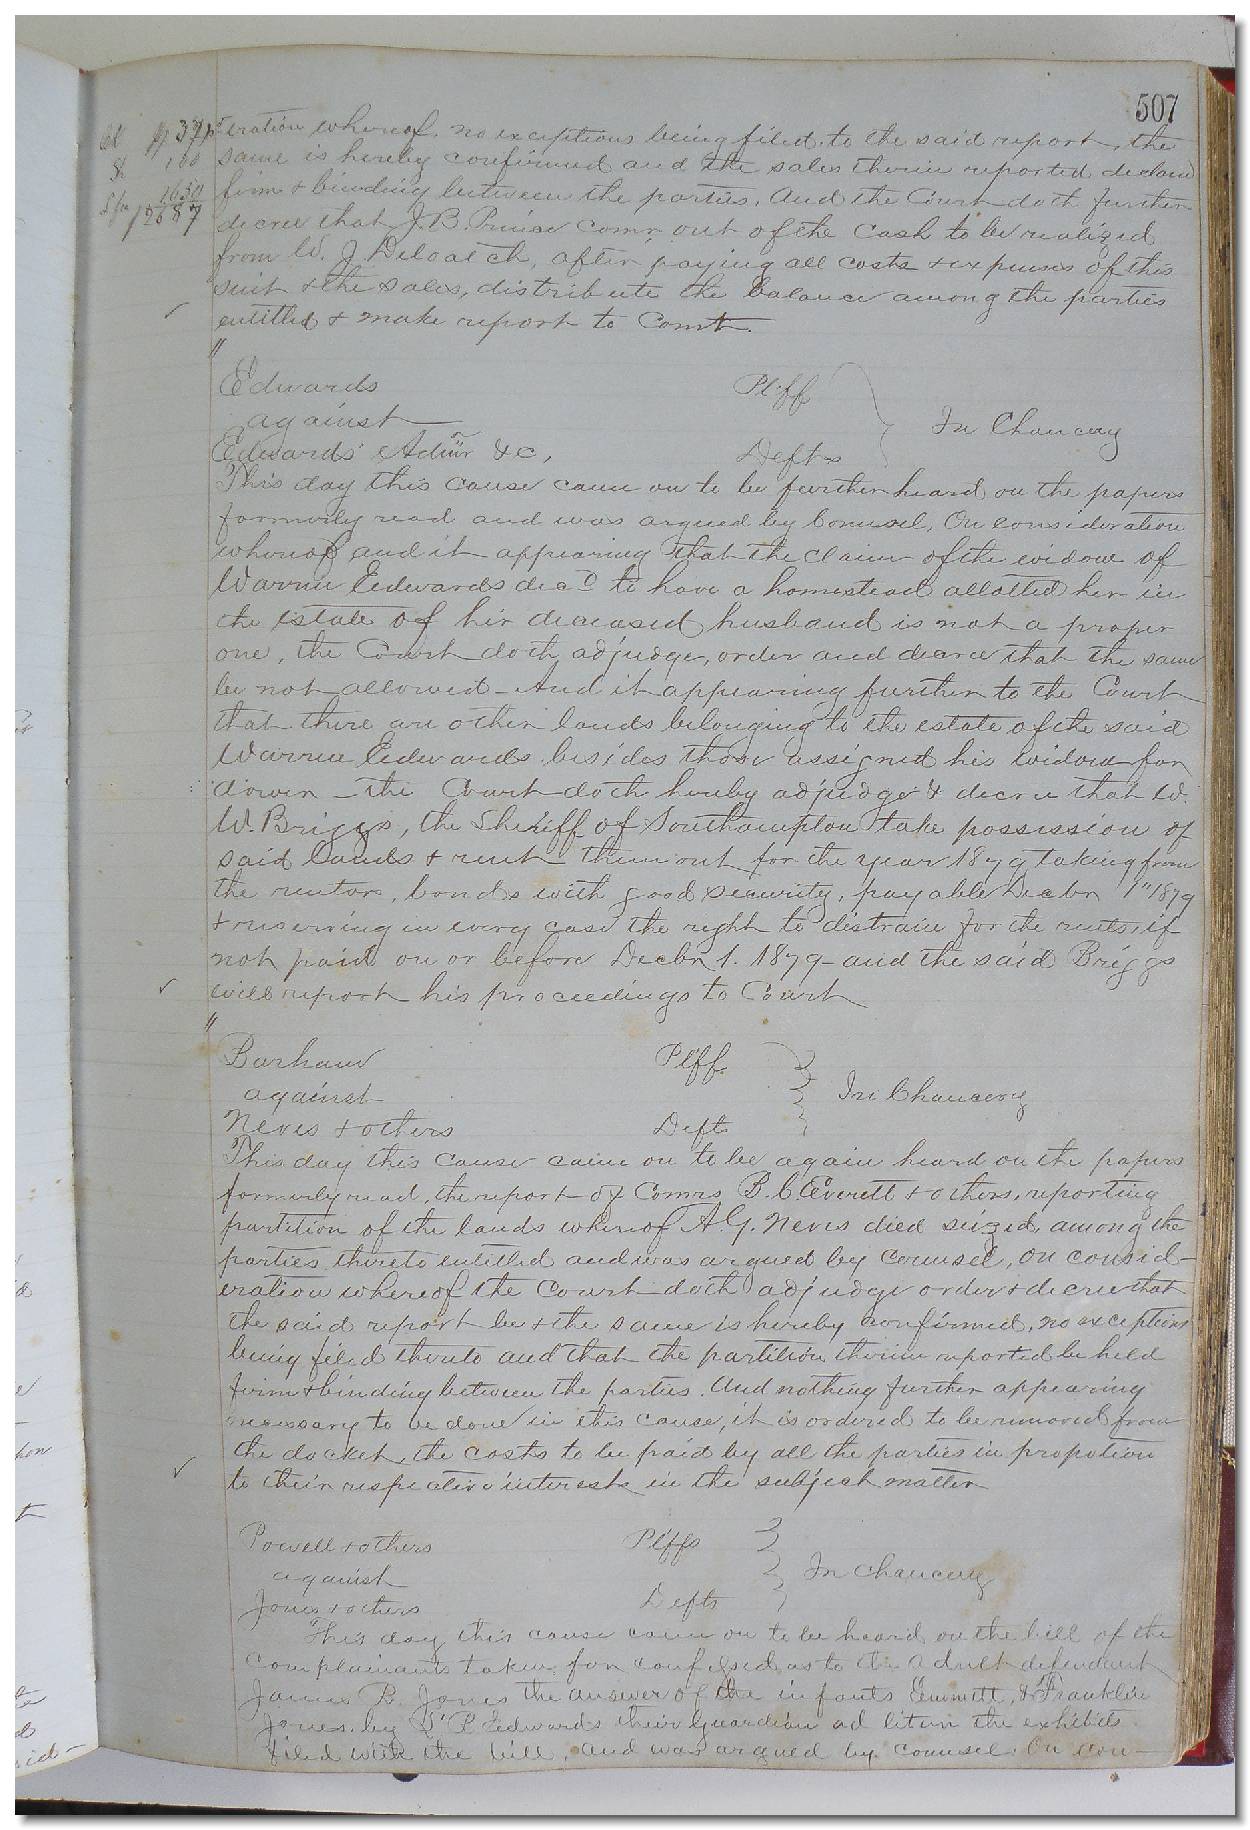 507
eration whereof, no exceptions being filed to the said report, the
same is hereby confirmed and the sales therein reported declared
firm & binding between the parties. And the Court doth further
decree that J. B. Prince Comr, out of the cash to be realized
from W. J. Deloatch, after paying all costs & expenses of this
suit & the sales, distribute the balance among the parties
entitled & make report to Court.
Edwards Pltff
against In Chancery
Edwards' Admr &c, Defts
This day this cause came on to be further heard on the papers
formerly read and was argued by Counsel, On consideration
whereof and it appearing that the claim of the widow of
Warren Eedwards decd to have a homestead allotted her in
the estate of her deceased husband is not a proper
one, the Court doth adjudge, order and decree that the same
be not allowed - And it appearing further to the Court
that there are other lands belonging to the estate of the said
Warren Eedwards besides those assigned his widow for
dower - the Court doth hereby adjudge & decree that W.
W. Briggs, the Sheriff of Southampton take possession of
said lands & rent them out for the year 1879 taking from
the renters, bonds with good security, payable Decbr 1" 1879
& reserving in every case the right to distrain for the rents, if
not paid on or before Decbr 1. 1879 - and the said Briggs
will report his proceedings to Court
Barham Plff
against In Chancery
Neves & others Defts
This day this cause came on to be again heard on the papers
formerly read, the report of Comrs B. C. Everett & others, reporting
partition of the lands whereof A. G. Neves died seized among the
parties thereto entitled and was argued by counsel, on consid-
eration whereof the Court doth adjudge order & decree that
the said report be & the same is hereby confirmed, no exceptions
being filed thereto and that the partition therein reported be held
firm & binding between the parties. And nothing further appearing
necessary to be done in this cause, it is ordered to be removed from
the docket, the costs to be paid by all the parties in propotion
to their respective interests in the subject matter
Powell & others Plffs
against In Chancery
Jones & others Defts
This day this cause came on to be heard on the bill of the
complainants taken for confessed as to the adult defendant
James R. Jones the answer of the infants Emmett, & Franklin
Jones by P. Eedwards their guardian ad litem the exhibits
filed with the bill, and was argued by counsel. On con-